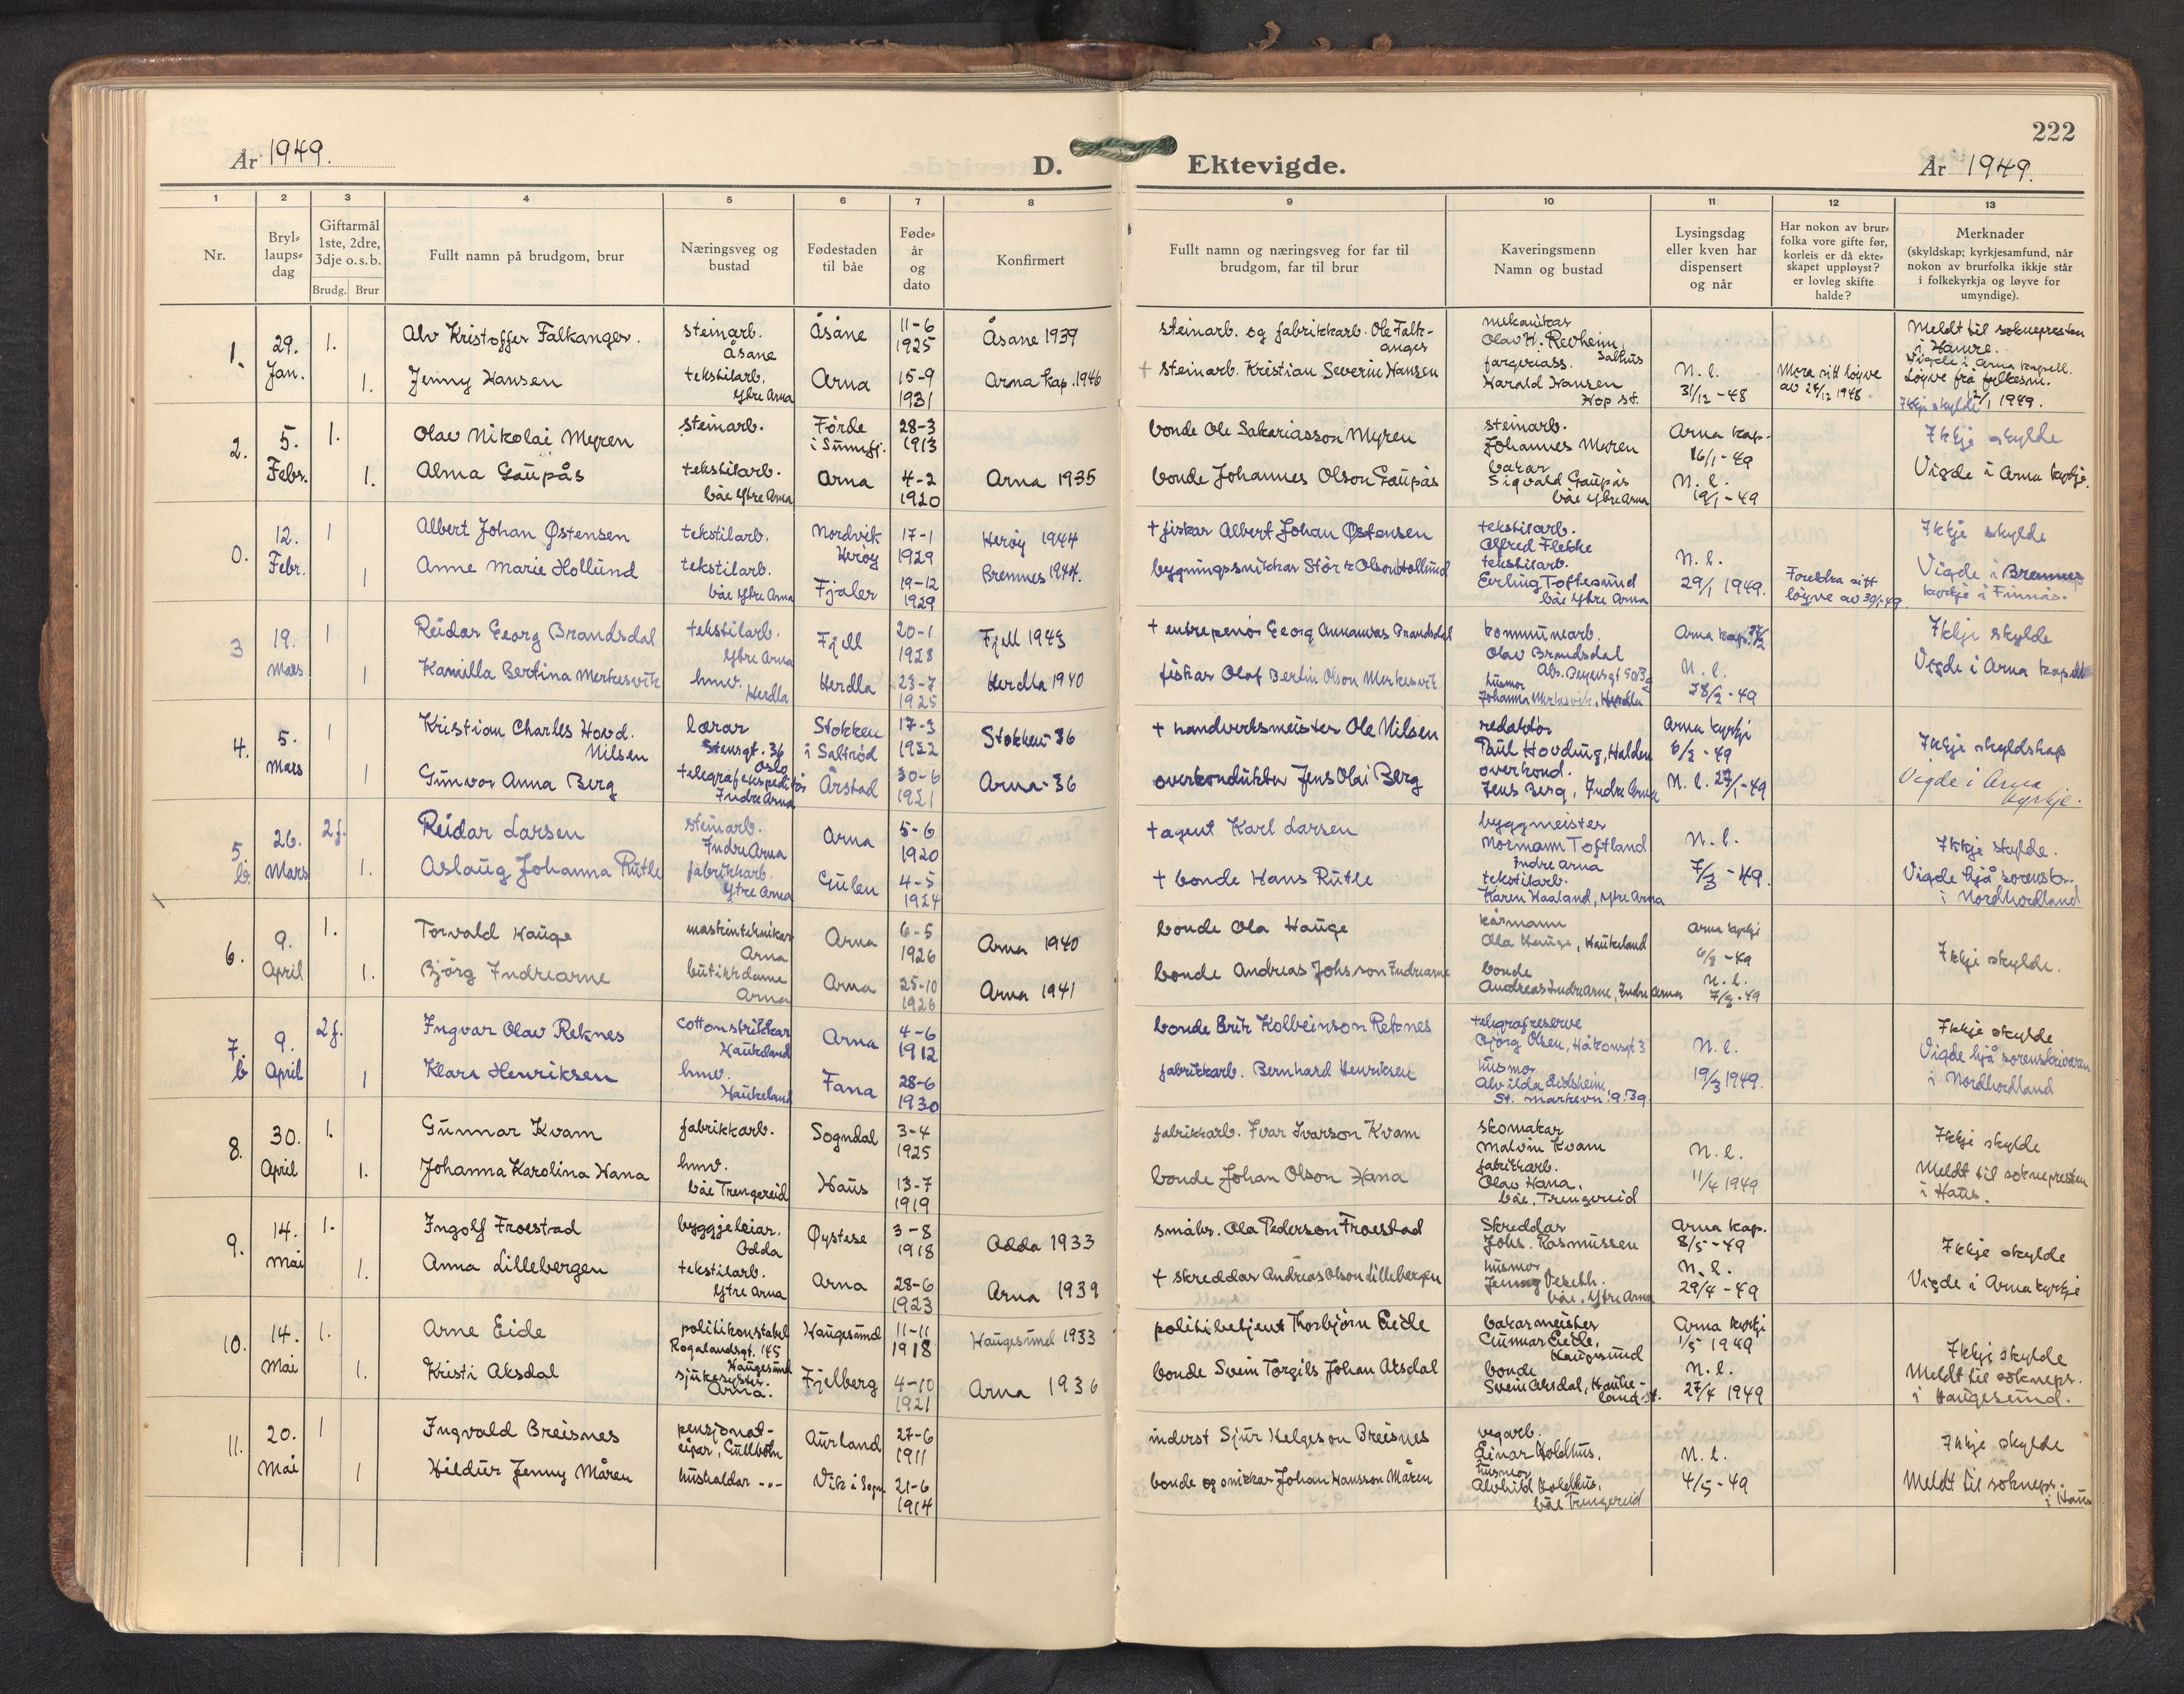 222
År 1949.
D. Ektevigde.
År 1949.
1 2 3 4 5 6 7 8 9 10 11 12 13
Nr.
Bryl-
laups-
dag
Giftarmål
1ste, 2dre,
3dje o.s.b.
Brudg. Brur
Fullt namn på brudgom, brur
Næringsveg og
bustad
Fødestaden
til båe
Føde-
år
og
dato
Konfirmert
Fullt namn og næringsveg for far til
brudgom, far til brur
Kaveringsmenn
Namn og bustad
Lysingsdag
eller kven har
dispensert
og når
Har nokon av brur-
folka vore gifte før,
korleis er då ekte-
skapet uppløyst?
er lovleg skifte
halde?
Merknader
(skyldskap; kyrkjesamfund, når
nokon av brurfolka ikkje står
i folkekyrkja og løyve for
umyndige).
1.
29.
Jan.
1.
Alv Kristoffer Falkanger.
steinarb.
Åsane
Åsane
11-6
1925
Åsane 1939
steinarb. og fabrikkarb. Ole Falk-
anger
mekanikar
Olav H. Revheim,
Salhus
Meldt til soknepresten
i Hamre.
1.
Jenny Hansen
tekstilarb.
Ytre Arna
Arna
15-9
1931
Arna kap. 1946
+ steinarb. Kristian Severin Hansen
fargeriass.
Harald Hansen
Hop st.
N. l.
31/12 -48
Mora sitt løyve
av 24/12 1948.
Vigde i Arna kapell.
Løyve frå fylkesm.
12/1 1949.
Ikkje skylde
2.
5.
Febr.
1.
Olav Nikolai Myren
steinarb.
Førde
i Sunnfj.
28-3
1913
bonde Ole Sakariasson Myren
steinarb.
Johannes Myren
Arna kap.
16/1 - 49
Ikkje skylde
1.
Alma Gaupås
tekstilarb.
båe Ytre Arna
Arna
4-2
1920
Arna 1935
bonde Johannes Olson Gaupås
barar
Sigvald Gaupås
båe Ytre Arna
N. l.
19/1 - 49
Vigde i Arna kyrkje.
0.
12.
Febr.
1
Albert Johan Østensen
tekstilarb.
Nordvik
Herøy
17-1
1929
Herøy 1944
+ fiskar Albert Johan Østensen
tekstilarb.
Alfred Flekke
Ikkje skylde
1
Anne Marie Hollund
tekstilarb.
båe Ytre Arna
Fjaler
19-12
1929
Bremnes 1944.
bygningssnikkar Stór k Olson Hollund
tekstilarb.
Erling Toftesund
båe Ytre Arna
N. l.
29/1 1949.
Foreldra sitt
løyve av 30/1-49.
Vigde i Bremnes
kyrkje i Finnås.
3
19.
Mars
1
Reidar Georg Brandsdal
tekstilarb.
Ytre Arna
Fjell
20-1
1928
Fjell 1943
+ entrepenør Georg Brandsdal
kommunearb.
Olav Brandsdal
Arna kap.
Ikkje skylde
1
Kamilla Bertina Merkesvik
hmv.
Herdla
Herdla
23-7
1925
Herdla 1940
fiskar Olaf Bertin Olson Merkesvik
husmor
Johanna Merkesvik, Herdla
N. l.
28/2 - 49
Vigde i Arna kapell
4.
5.
Mars
1
Kristian Charles Hovd.
Nilsen
lærar
Stensgt. 36
Oslo
Stokken
i Saltrød
17-3
1922
Stokken - 36
+ handverksmeister Ole Nilsen
redaktør
Paul Hovding, Halden
Arna kyrkje
6/2 - 49
Ikkje skyldskap
1
Gunvor Anna Berg
telegrafekspeditør
Indre Arna
Årstad
30-6
1921
Arna - 36
overkonduktør Jens Olai Berg
overkond.
Jens Berg, Indre Arna
N. l. 27/1 - 49
Vigde i Arna
kyrkje.
5
b.
26.
Mars
2 f.
Reidar Larsen
steinarb.
Indre Arna
Arna
5-6
1920
+ agent Karl Larsen
byggmeister
Normann Toftland
Indre Arna
N. l.
Ikkje skylde.
1.
Aslaug Johanna Rutle
fabrikkarb.
Ytre Arna
Gulen
4-5
1924
+ bonde Hans Rutle
tekstilarb.
Karen Haaland, Ytre Arna
7/3 - 49.
Vigde hjå sorenskr.
i Nordhordland
6.
9.
April
1.
Torvald Hauge
maskintekniker
Arna
Arna
6-5
1926
Arna 1940
bonde Ola Hauge
kårmann
Ola Hauge, Haukeland
Arna kyrkje
6/3 - 49
Ikkje skylde.
1.
Bjørg Indrearne
butikkdame
Arna
Arna
25-10
1926
Arna 1941
bonde Andreas Johs.son Indrearne
bonde
Andreas Indrearne, Indre Arna
N. l.
7/3 - 49
7
b
9.
April
2 f.
Ingvar Olav Reknes
cottonstrikkar
Haukeland
Arna
4-6
1912
bonde Erik Kolbeinson Reknes
telegrafreserve
Bjørg Olsen, Håkonsgt. 3
N. l.
Ikkje skylde
1
Klara Henriksen
hmv.
Haukeland
Fana
28-6
1930
fabrikkarb. Bernhard Henriksen
husmor
Alvilda Eidsheim,
St. Markevn. 9. 39
19/3 1949.
Vigde hjå sorenskriveren
i Nordhordland
8.
30.
April
1.
Gunnar Kvam
fabrikkarb.
Sogndal
3-4
1925
fabrikkarb. Ivar Ivarson Kvam
skomakar
Malvin Kvam
N. l.
Ikkje skylde
1.
Johanna Karolina Hana
hmv.
båe Trengereid
Haus
13-7
1919
bonde Johan Olson Hana
fabrikkarb.
Olav Hana.
båe, Trengereid
11/4 1949
Meldt til soknepresten
i Haus.
9.
14.
Mai
1.
Ingolf Froestad
byggjeleiar.
Odda
Øystese
3-8
1918
Odda 1933
småbr. Ola Pederson Froestad
Skreddar
Johs. Rasmussen
Arna kap.
8/5 - 49
Ikkje skylde
1.
Anna Lillebergen
tekstilarb.
Ytre Arna
Arna
28-6
1923
Arna 1939
+ skreddar Andreas Olson Lillebergen
husmor
Jenny
båe, Ytre Arna
N. l.
29/4 - 49
Vigde i Arna kyrkje
10.
14.
Mai
1.
Arne Eide
politikonstabel
Rogalandsgt. 145
Haugesund
Haugesund
11-11
1918
Haugesund 1933
politibetjent Thorbjørn Eide
bakarmeister
Gunnar Eide,
Haugesund
Arna kyrkje
1/5 1949
Ikkje skylde
1.
Kristi Aksdal
sjukesyster.
Arna.
Fjelberg
4-10
1921
Arna 1936
bonde Svein Torgils Johan Aksdal
bonde
Svein Aksdal, Hauke-
land st.
N. l.
27/4 1949
Meldt til soknepr.
i Haugesund.
11.
20.
Mai
1
Ingvald Breisnes
pensjonat-
eigar, Gullbotn
Aurland
27-6
1911
inderst Sjur Helgeson Breisnes
vegarb.
Einar Holdhus.
N. l.
Ikkje skylde
1
Hildur Jenny Måren
hushaldar -"-
Vik i Sogn
21-6
1914
bonde og snikkar Johan Hansson Måren
husmor
Alvhild Holdhus,
båe Trengereid
4/5 - 49
Meldt til soknepr.
i Haus